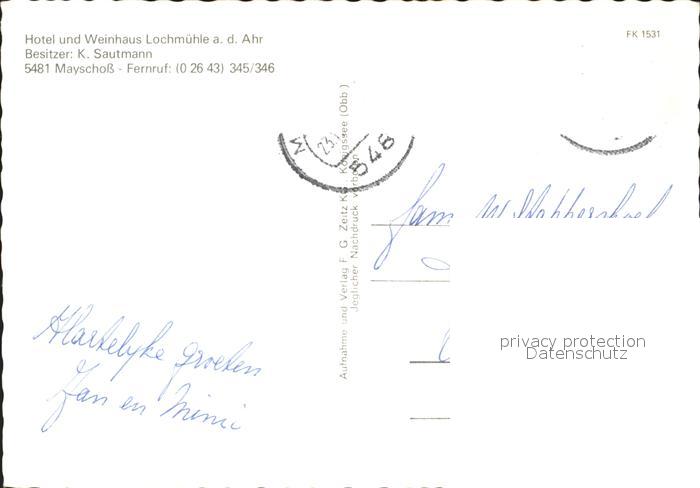 Hotel und Weinhaus Lochmühle a. d. Ahr
Besitzer: K. Sautmann
5481 Mayschoß - Fernruf: (0 26 43) 345/346
FK 1531
M
23.
546
Aufnahme und Verlag F. G. Zeitz KG., Königssee (Obb.)
Jeglicher Nachdruck verboten
fam
privacy protection
Datenschutz
Hartelyke groeten
Jan en Mimi